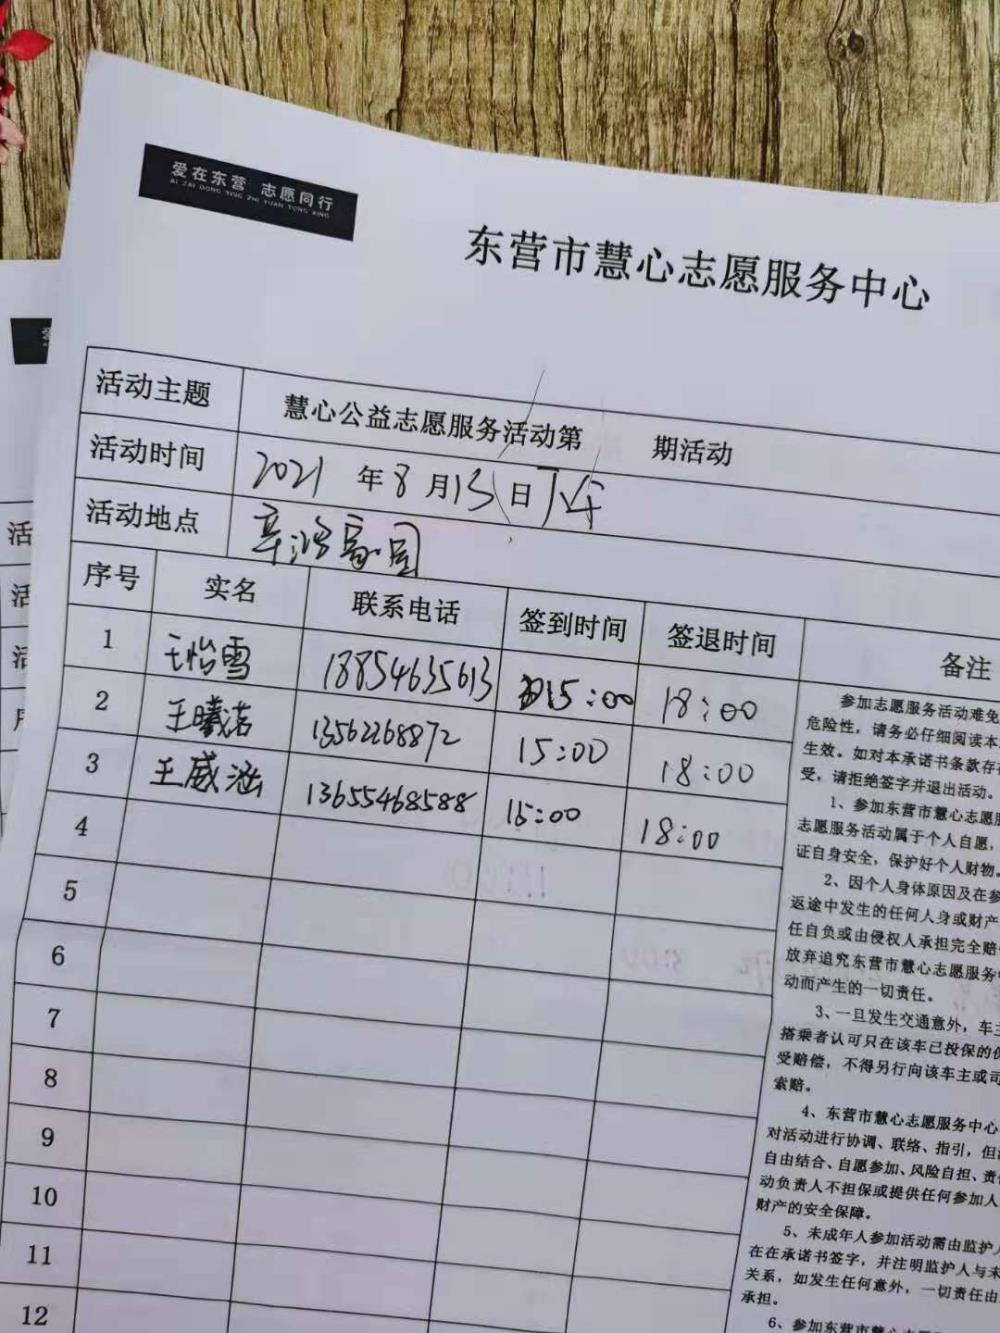 爱在东营 志愿同行
AI ZAI DONG YING ZHI YUAN TONG XING
东营市慧心志愿服务中心
活动主题 慧心公益志愿服务活动第 期活动
活动时间 2021 年 8 月 13 日 下午
活动地点 辛鸿家园
序号 实名 联系电话 签到时间 签退时间 备注
1 王怡雪 18854635613 15:00 18:00
2 王曦诺 13562268872 15:00 18:00
3 王葳涵 13655468588 15:00 18:00
4
5
6
7
8
9
10
11
12
参加志愿服务活动难免
危险性，请务必仔细阅读本
生效。如对本承诺书条款存
受，请拒绝签字并退出活动。
1、参加东营市慧心志愿服
志愿服务活动属于个人自愿，
证自身安全，保护好个人财物。
2、因个人身体原因及在参
返途中发生的任何人身或财产
任自负或由侵权人承担完全赔
放弃追究东营市慧心志愿服务
动而产生的一切责任。
3、一旦发生交通意外，车主
搭乘者认可只在该车已投保的
受赔偿，不得另行向该车主或司
索赔。
4、东营市慧心志愿服务中心
对活动进行协调、联络、指引，但
自由结合、自愿参加、风险自担、责
动负责人不担保或提供任何参加人
财产的安全保障。
5、未成年人参加活动需由监护人
在在承诺书签字，并注明监护人与未
关系，如发生任何意外，一切责任由
承担。
6、参加东营市慧心志愿